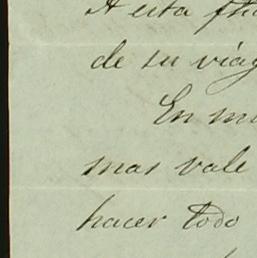 A esta
de su viag
En mi
mas vale
hacer todo